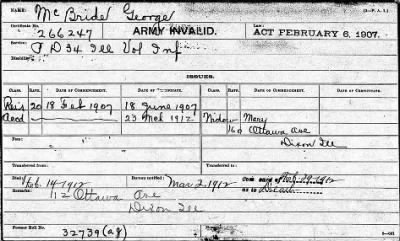 NAME: McBride George (3-P. A. I.)
Certificate No. 266247 ARMY INVALID. Law: ACT FEBRUARY 6, 1907.
Service: D 34 Ill Vol Inf
Disability:
ISSUES.
CLASS. RATE. DATE OF COMMENCEMENT. DATE OF CERTIFICATE. CLASS. RATE. DATE OF COMMENCEMENT. DATE OF CERTIFICATE.
Reis 20 18 Feb 1907 18 June 1907
23 Mch 1912 Widow Mary
Ottawa Ave
Dixon Ill
Fees:
Transferred from Transferred to
Died: Feb. 14 1912 Bureau notified: Mar 2, 1912
Remarks: 112 Ottawa Ave
Dixon Ill
Former Roll No. 32739 (ag)